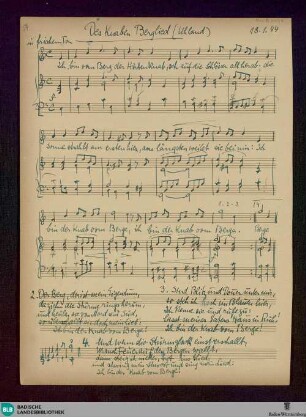 Des Knaben Berglied (Uhland)
18.1.44
in frischem Ton
Ich bin vom Berg der Hirtenknab, seh auf die Schlösser all herab, die
Sonne strahlt am ersten hier, am längsten weilet sie bei mir: Ich
1-2-3
bin der Knab vom Berge, ich bin der Knab vom Berge. Berge
2. Der Berg, der ist mein Eigentum,
da ziehn die Stürme rings herum,
und heulen sie von Nord und Süd,
so überschallt sie doch mein Lied:
Ich bin der Knab vom Berge!
3. Sind Blitz und Donner unter mir,
so steh ich hoch im Blauen hier,
Ich kenne sie und rufe zu:
Lasst meines Vaters Haus in Ruh!
Ich bin der Knab vom Berge!
4. Und wenn die Sturmglock einst erschallt,
manch Feuer auf den Bergen wallt,
dann steig ich nieder, tret ins Glied
und schwing mein Schwert und sing mein Lied:
Ich bin der Knab vom Berge!
BLB
BADISCHE
LANDESBIBLIOTHEK
Baden-Württemberg